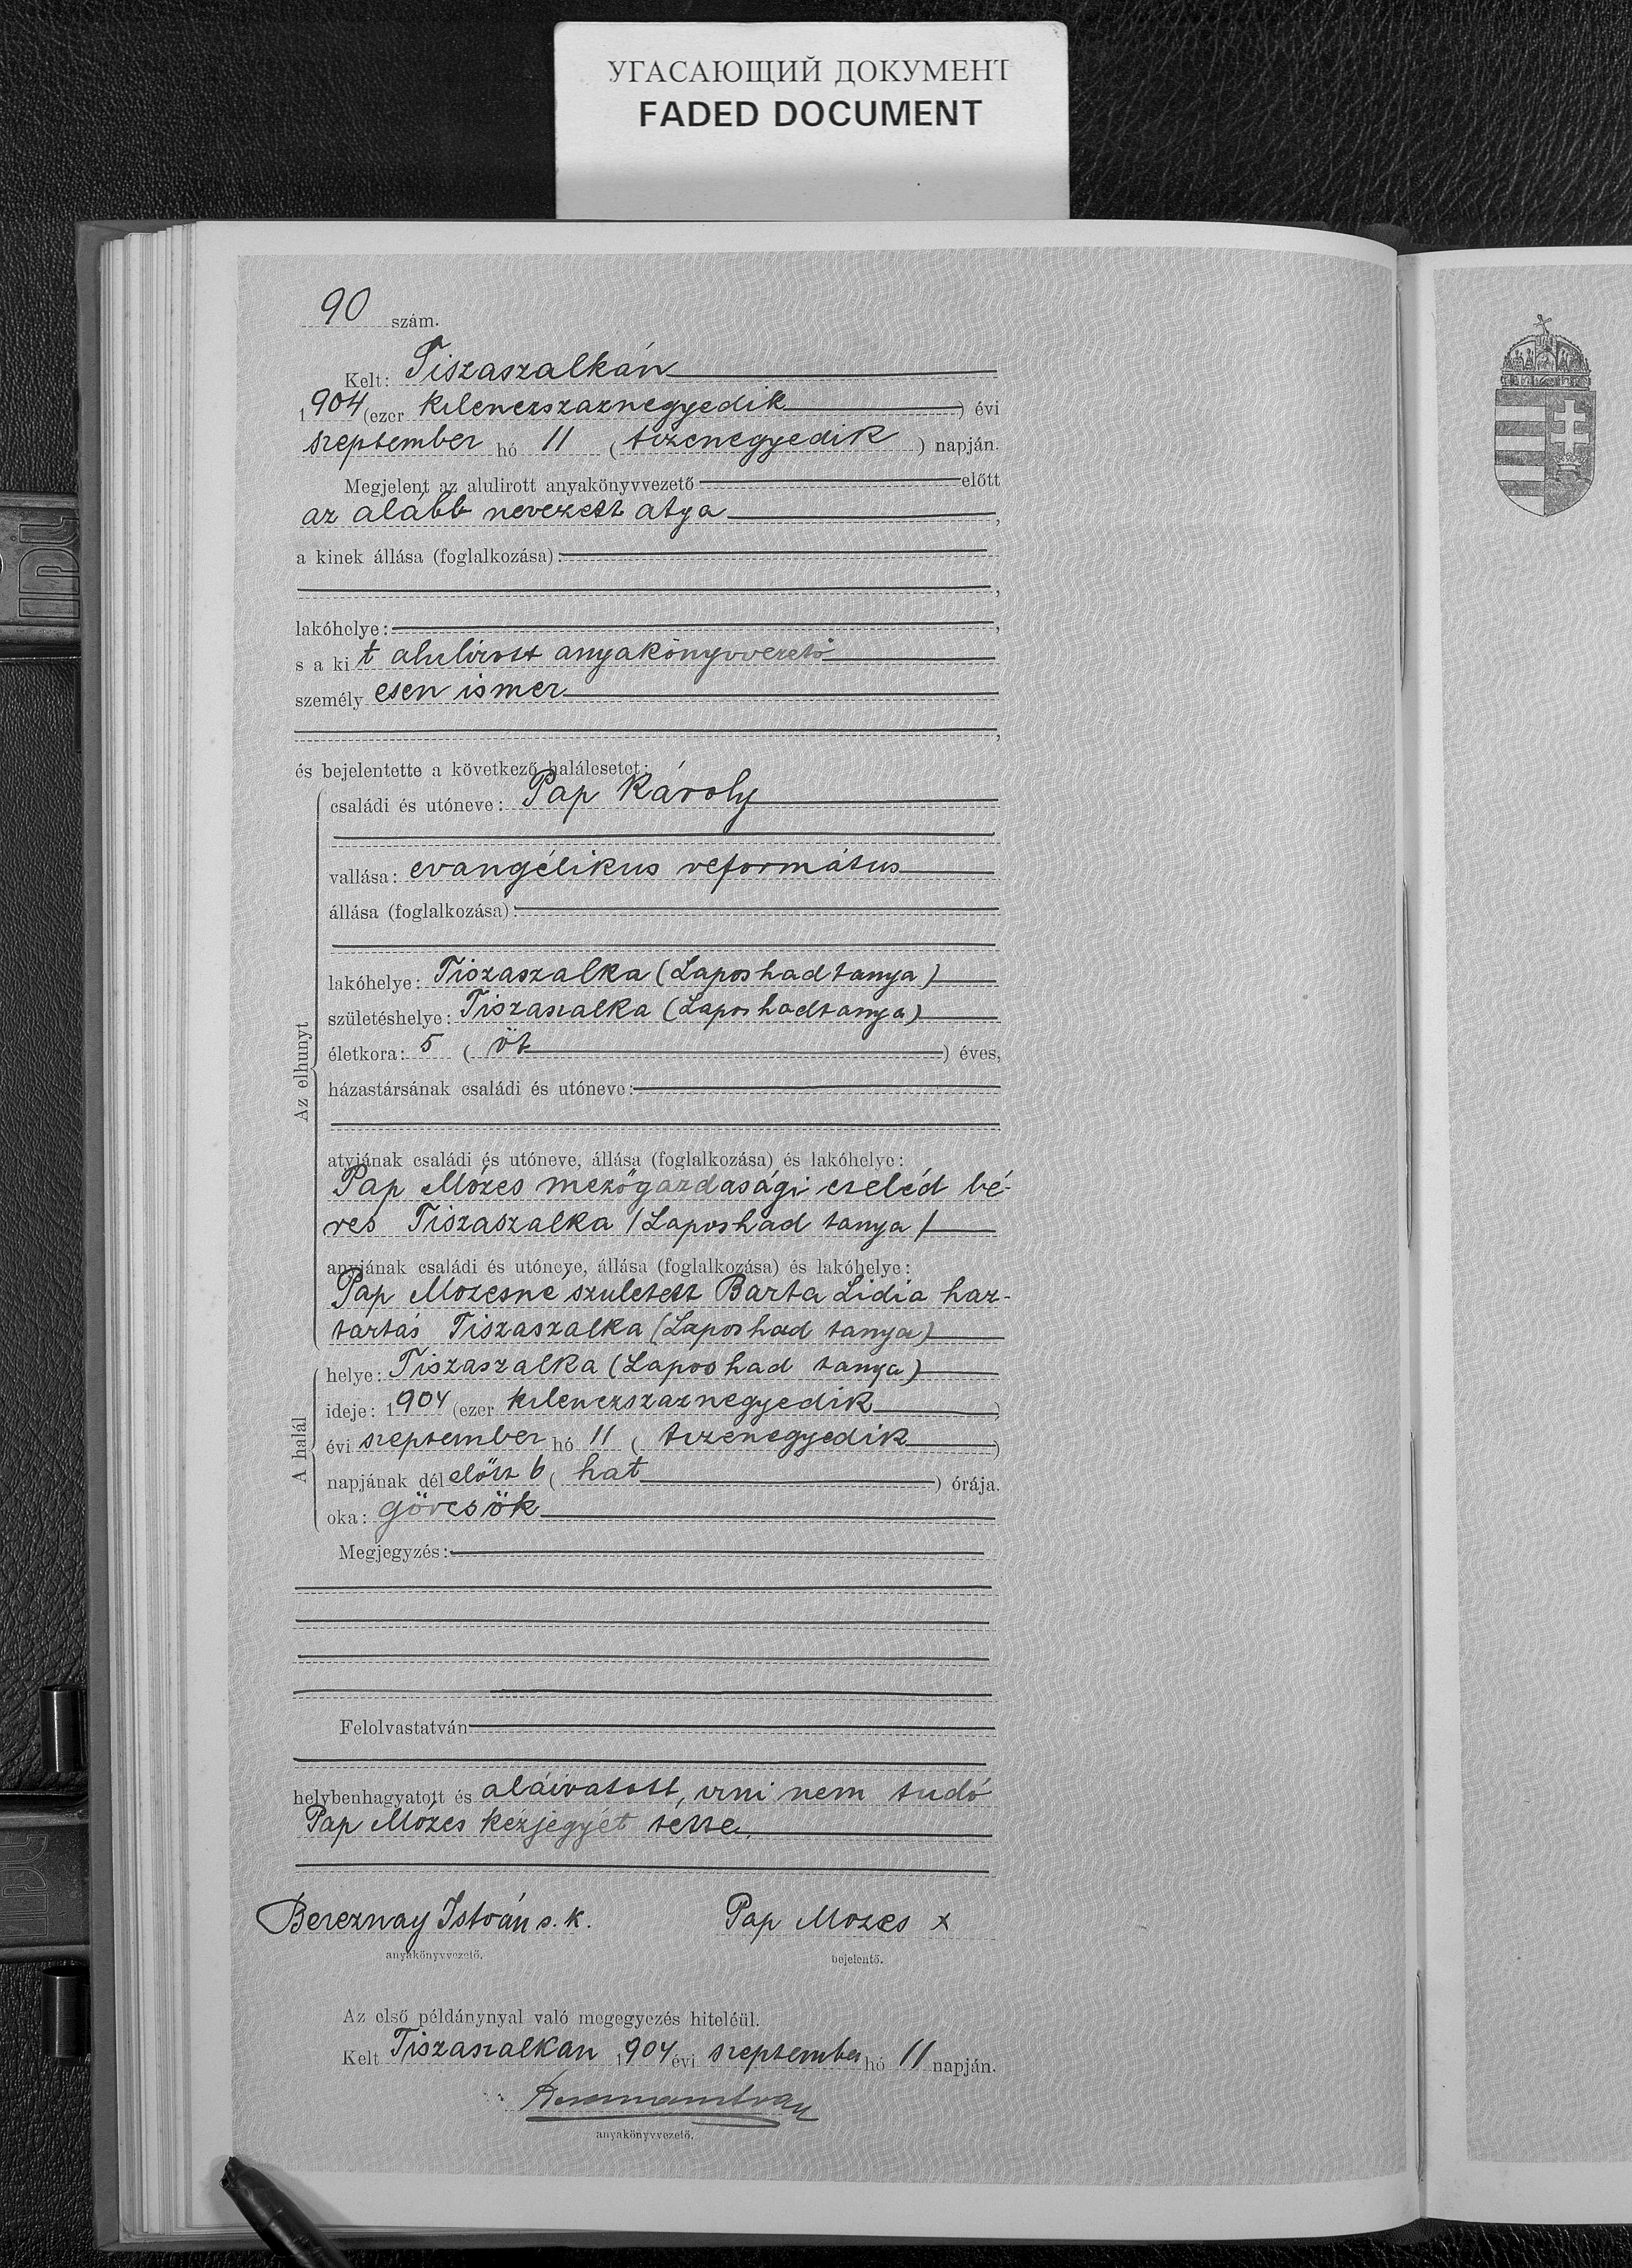 УГАСАЮЩИЙ ДОКУМЕНТ
FADED DOCUMENT
90 szám.
Kelt: Tiszaszalkán
1904 (ezer kilenczszaznegyedik) évi
szeptember hó 11 (tizenegyedik) napján.
Megjelent az alulirott anyakönyvvezető előtt
az alább nevezett atya,
a kinek állása (foglalkozása):
,
lakóhelye: ,
s a kit alulirott anyakönyvvezető
személyesen ismer
,
és bejelentette a következő halálesetet:
Az elhunyt
családi és utóneve: Pap Károly
vallása: evangélikus református
állása (foglalkozása):
lakóhelye: Tiszaszalka (Laposhadtanya)
születéshelye: Tiszaszalka (Laposhadtanya)
életkora: 5 (öt) éves,
házastársának családi és utóneve:
atyjának családi és utóneve, állása (foglalkozása) és lakóhelye:
Pap Mózes mezőgazdasági cseléd bé-
res Tiszaszalka /Laposhad tanya/
anyjának családi és utóneve, állása (foglalkozása) és lakóhelye:
Pap Mozesné született Barta Lidia haz-
tartás Tiszaszalka (Laposhad tanya)
A halál
helye: Tiszaszalka (Laposhad tanya)
ideje: 1904 (ezer kilenczszaznegyedik)
évi szeptember hó 11 (tizenegyedik)
napjának délelőtt 6 (hat) órája.
oka: görcsök
Megjegyzés:
Felolvastatván
helybenhagyatott és aláiratott, irni nem tudó
Pap Mózes kézjegyét tette.
Bereznay István s. k. Pap Mozes x
anyakönyvvezető. bejelentő.
Az első példánynyal való megegyezés hiteléül.
Kelt Tiszaszalkan 1904 évi szeptember hó 11 napján.
anyakönyvvezető.